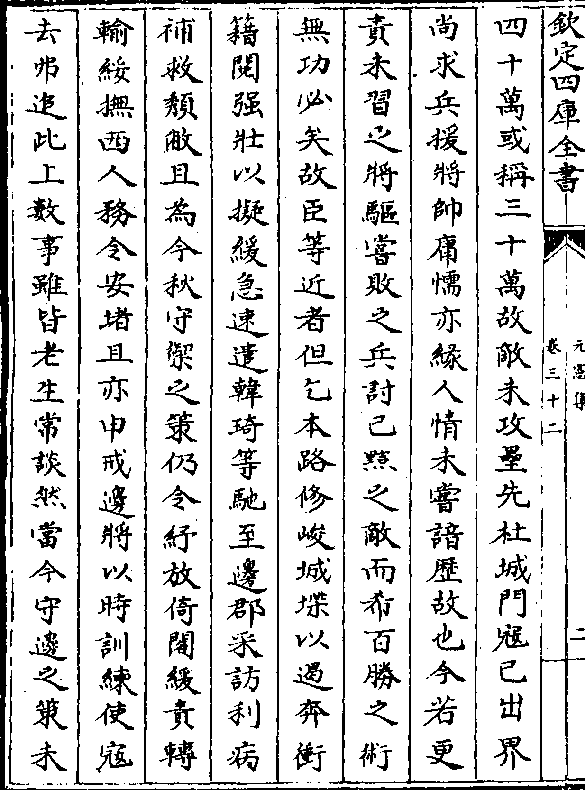 欽定四庫全書
元憲集
卷三十二
二
四十萬或稱三十萬故敵未攻壘先杜城門寇已出界
尚求兵援將帥庸懦亦緣人情未嘗諳歷故也今若更
責未習之將驅嘗敗之兵討已黠之敵而希百勝之術
無功必矣故臣等近者但乞本路修峻城堞以遏奔衝
籍閱强壯以擬緩急速遣韓琦等馳至邊郡采訪利病
補救頽敝且為今秋守禦之策仍令紓放倚閣緩責轉
輸綏撫西人務令安堵且亦申戒邊將以時訓練使寇
去弗追此上數事雖皆老生常談然當今守邊之策未